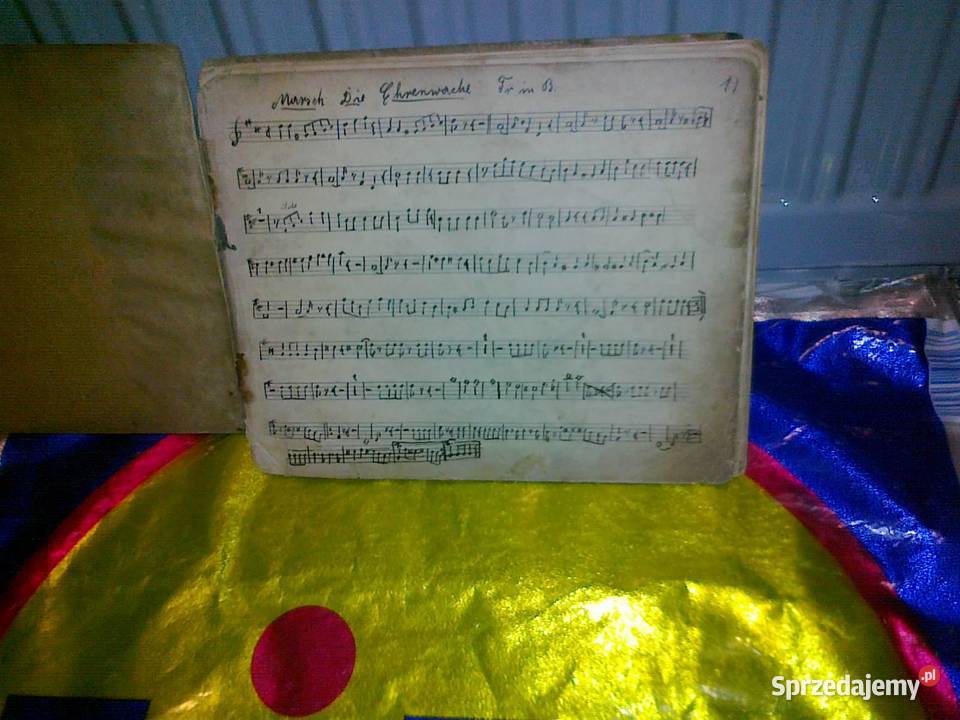 Marsch Die Ehrenwache Tr in B.
Solo
Sprzedajemy.pl